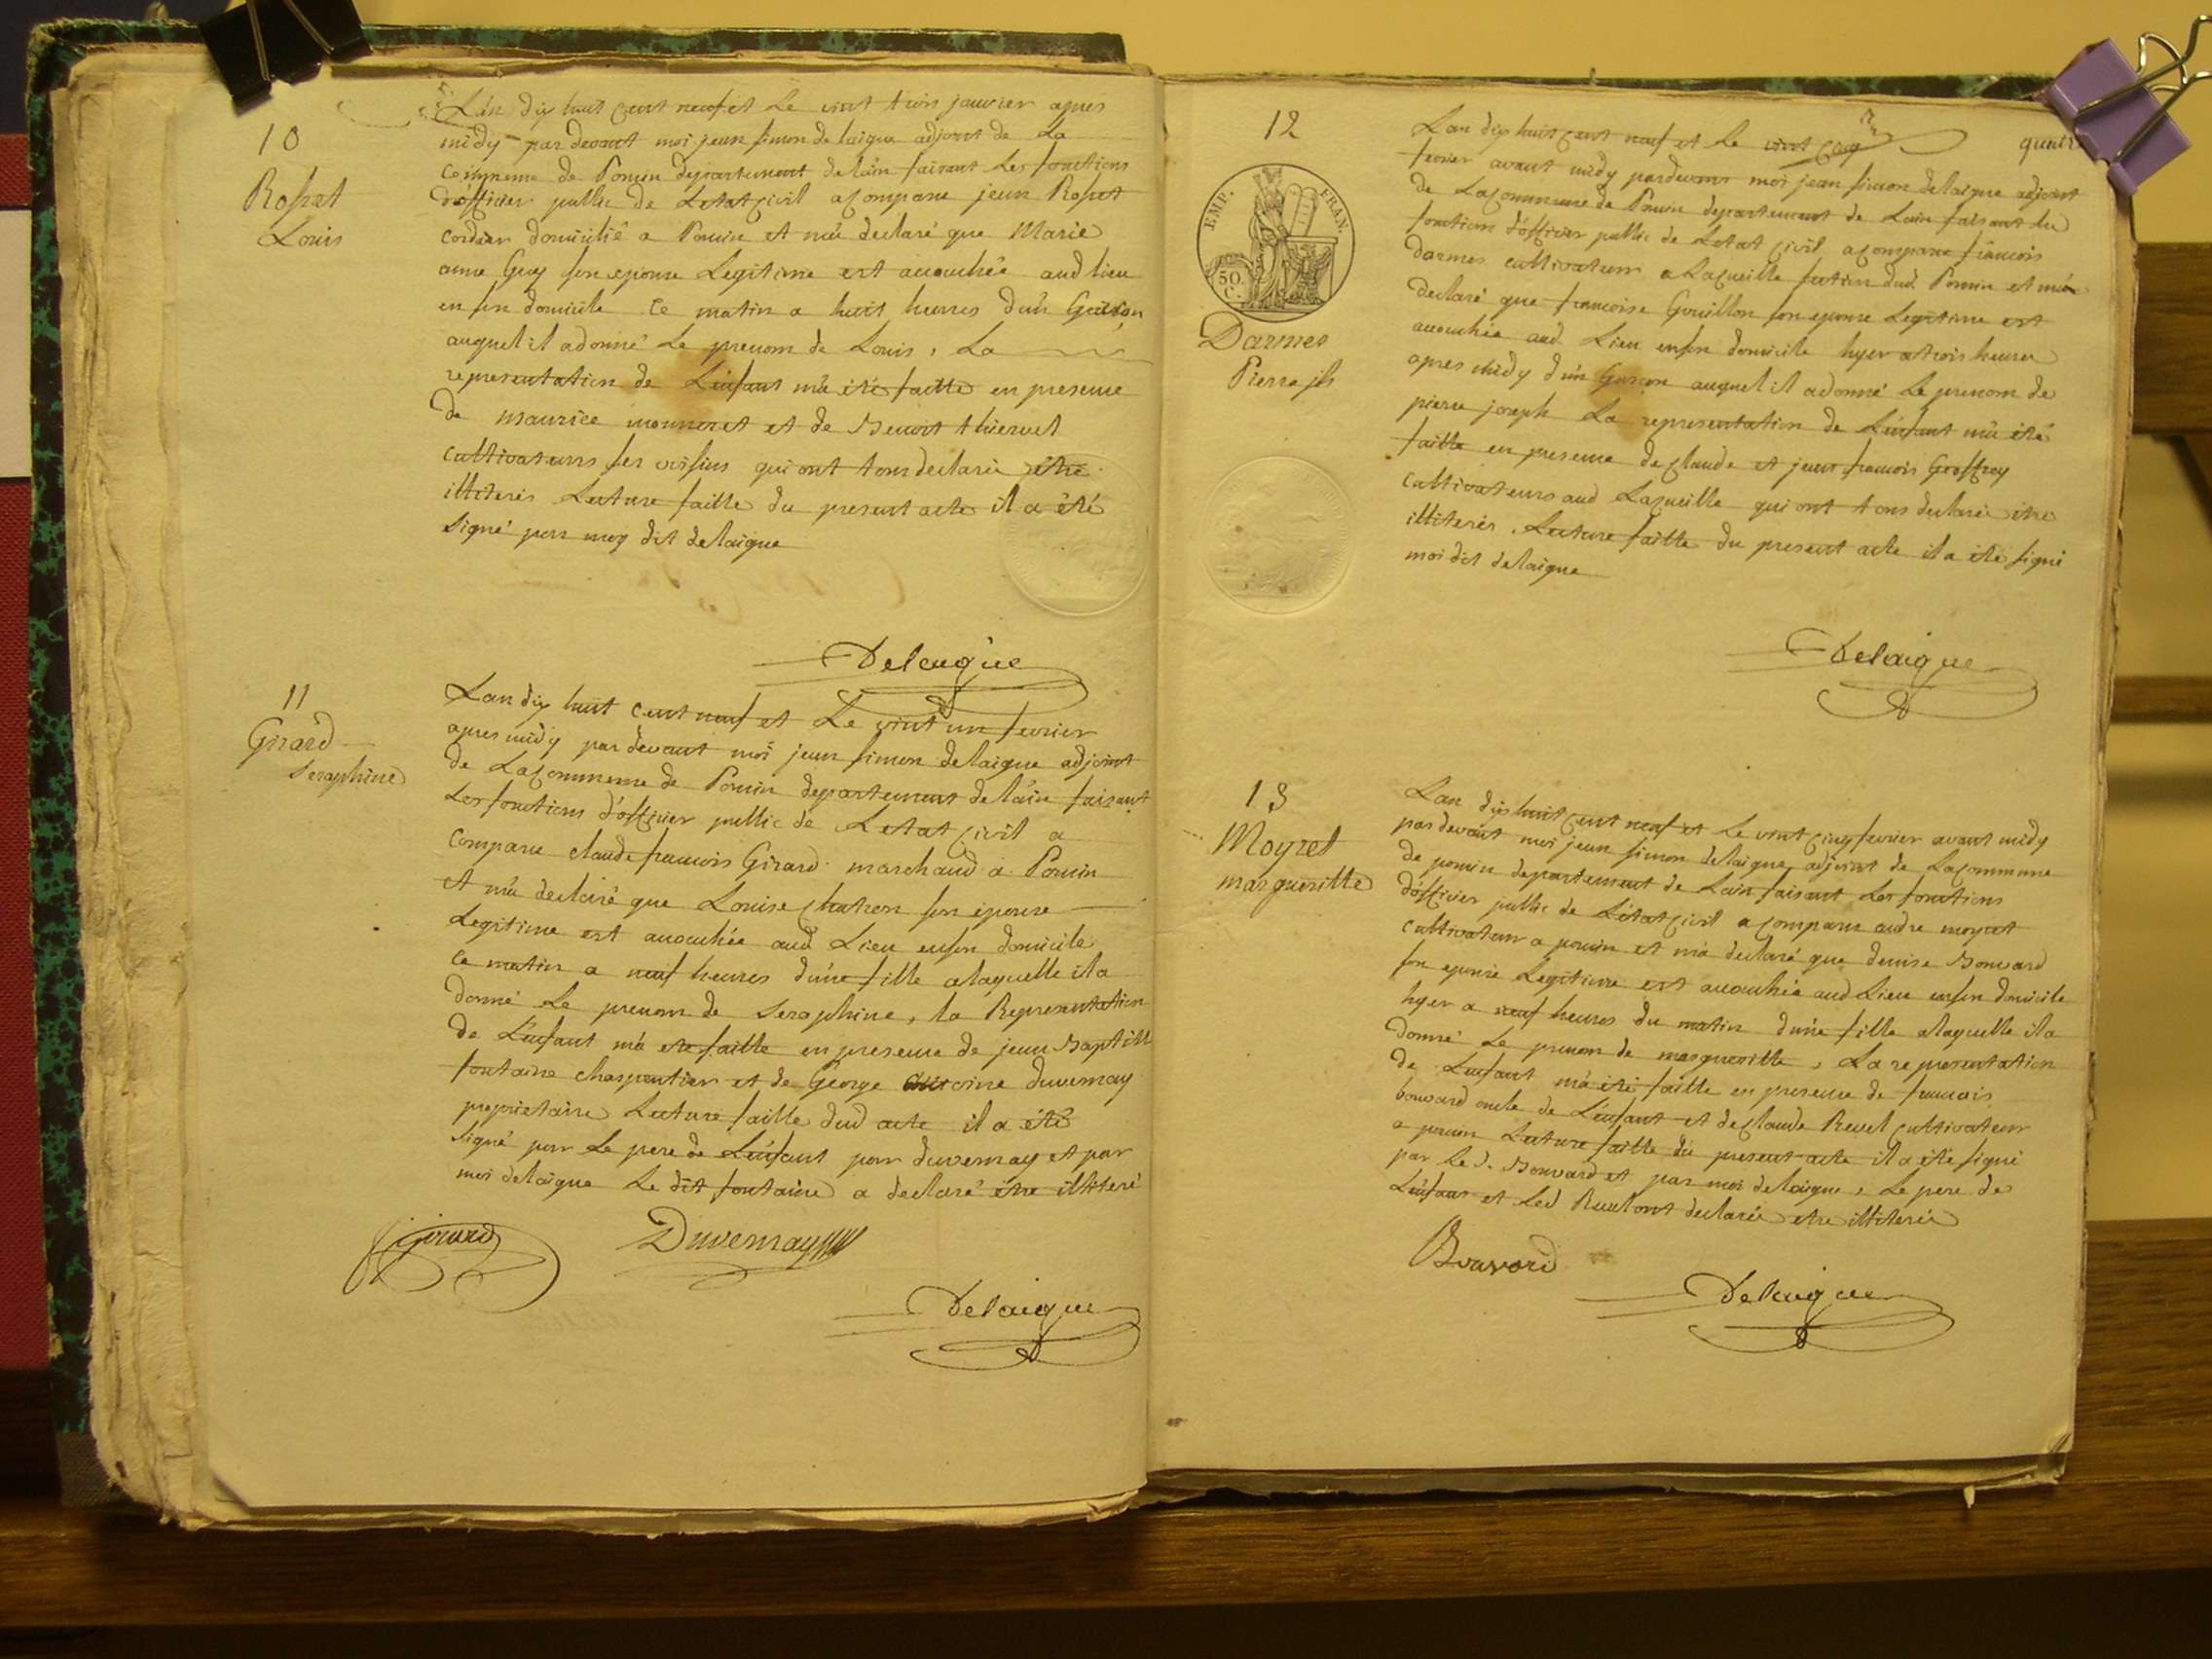 10
Rosset
Louis
L'an dix huit cent neuf et le vint trois janvier apres
midy par devant moi jean simon delaigue adjoint de La
Commune de Poncin departement de l'ain faisant Les fonctions
d'officier public de Letat civil a comparu jean Rosset
cordier domicilié a Poncin et m'a declaré que Marie
anne Guy son epouse Legitime est accouchée aud lieu
en son domicile ce matin a huit heures d'un Garçon
auquel il a donné Le prenom de Louis, La
representation de L'enfant m'a été faitte en presence
de maurice monneret et de Benoit thievent
cultivateurs ses voisins qui ont tous declaré être
illiterés Lecture faitte du present acte il a été
signé par moy dit delaigue
Delaigue
11
Girard
Seraphine
Lan dix huit cent neuf et Le vint un fevrier
apres midy par devant moi jean simon delaigue adjoint
de La Commune de Poncin departement de l'ain faisant
Les fonctions d'officier public de Letat civil a
comparu claude francois Girard marchand a Poncin
et m'a declaré que Louise Chatron son epouse
Legitime est accouchée aud Lieu en son domicile
ce matin a neuf heures d'une fille a laquelle il a
donné Le prenom de Seraphine, la Representation
de L'enfant m'a ete faitte en presence de jean Baptiste
fontaine charpentier et de George antoine duvernay
proprietaire Lecture faitte dud acte il a été
signé par Le pere de L'enfant par duvernay et par
moi delaigue Le dit fontaine a declaré être illiteré
Girard
Duvernay
Delaigue
12
quatre
EMP. FRAN.
50
C.
Darmes
Pierre jh
Lan dix huit cent neuf et Le vint cinq
fevrier avant midy pardevant moi jean simon delaigue adjoint
de La Commune de Poncin departement de Lain faisant les
fonctions d'officier public de Letat civil a comparu francois
darmes cultivateur a Lacueille section dud Poncin et m'a
declaré que francoise Gouillon son epouse Legitime est
accouchée aud Lieu en son domicile hyer a trois heures
apres midy d'un Garcon auquel il a donné Le prenom de
pierre joseph La representation de L'enfant m'a été
faitte en presence de claude et jean francois Groffrey
cultivateurs aud Lacueille qui ont tous declaré etre
illiterés. Lecture faitte du present acte il a été signé
moi dit delaigue
Delaigue
13
Moyret
margueritte
Lan dix huit cent neuf et Le vint cinq fevrier avant midy
par devant moi jean simon delaigue adjoint de La Commune
de poncin departement de Lain faisant Les fonctions
d'officier public de L'etat civil a comparu andre moyret
cultivateur a poncin et m'a declaré que denise Bonvard
son epouse Legitime est accouchée aud Lieu en son domicile
hyer a neuf heures du matin d'une fille a laquelle il a
donné Le prenom de margueritte, La representation
de L'enfant m'a été faitte en presence de francois
bouvard oncle de L'enfant et de claude Revel cultivateur
a poncin Lecture faitte du present acte il a été signé
par Le d. Bouvard et par moi delaigue, Le pere de
L'enfant et Led Revel ont declaré etre illiterés
Bouvard
Delaigue